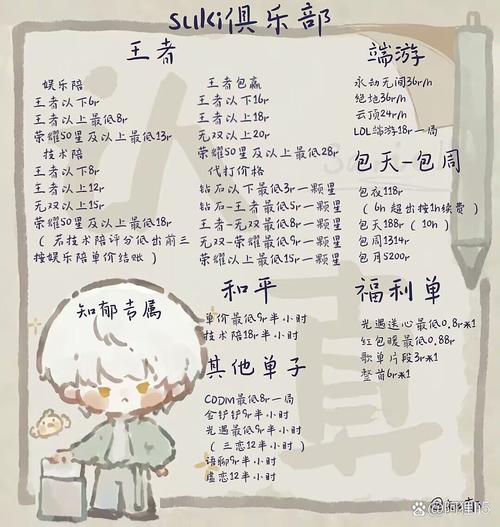 suki俱乐部
王者
娱乐陪
王者以下6r
王者以上最低8r
荣耀50星及以上最低13r
技术陪
王者以下8r
王者以上12r
无双以上15r
荣耀50星及以上最低18r
(若技术陪评分低出前三
按娱乐陪单价结账)
王者包赢
王者以下16r
王者以上18r
无双以上20r
荣耀50星及以上最低28r
代打价格
钻石以下最低3r一颗星
钻石-王者最低5r一颗星
王者-无双最低8r一颗星
无双-荣耀最低9r一颗星
荣耀以上最低15r一颗星
端游
永劫无间36r/h
绝地36r/h
云顶24r/h
LOL端游18r一局
包天-包周
包夜118r
(6h超出按1h续费)
包天188r(10h)
包周1314r
包月5200r
知郁专属
和平
单价最低9r半小时
技术陪18r半小时
其他单子
CODM最低8r一局
金铲铲9r半小时
光遇最低9r半小时
(三恋12半小时)
语聊9r半小时
虚恋12半小时
福利单
光遇送心最低0.8r*1
红包暖最低0.88r
歌单片段3r*1
整首6r*1